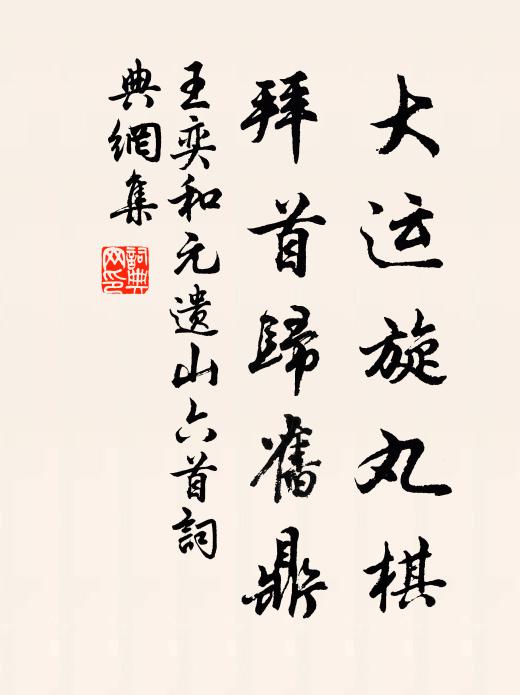 大运旋丸棋
拜首歸舊鼎
王奕和元遗山六首詞
典網集
詞典网印